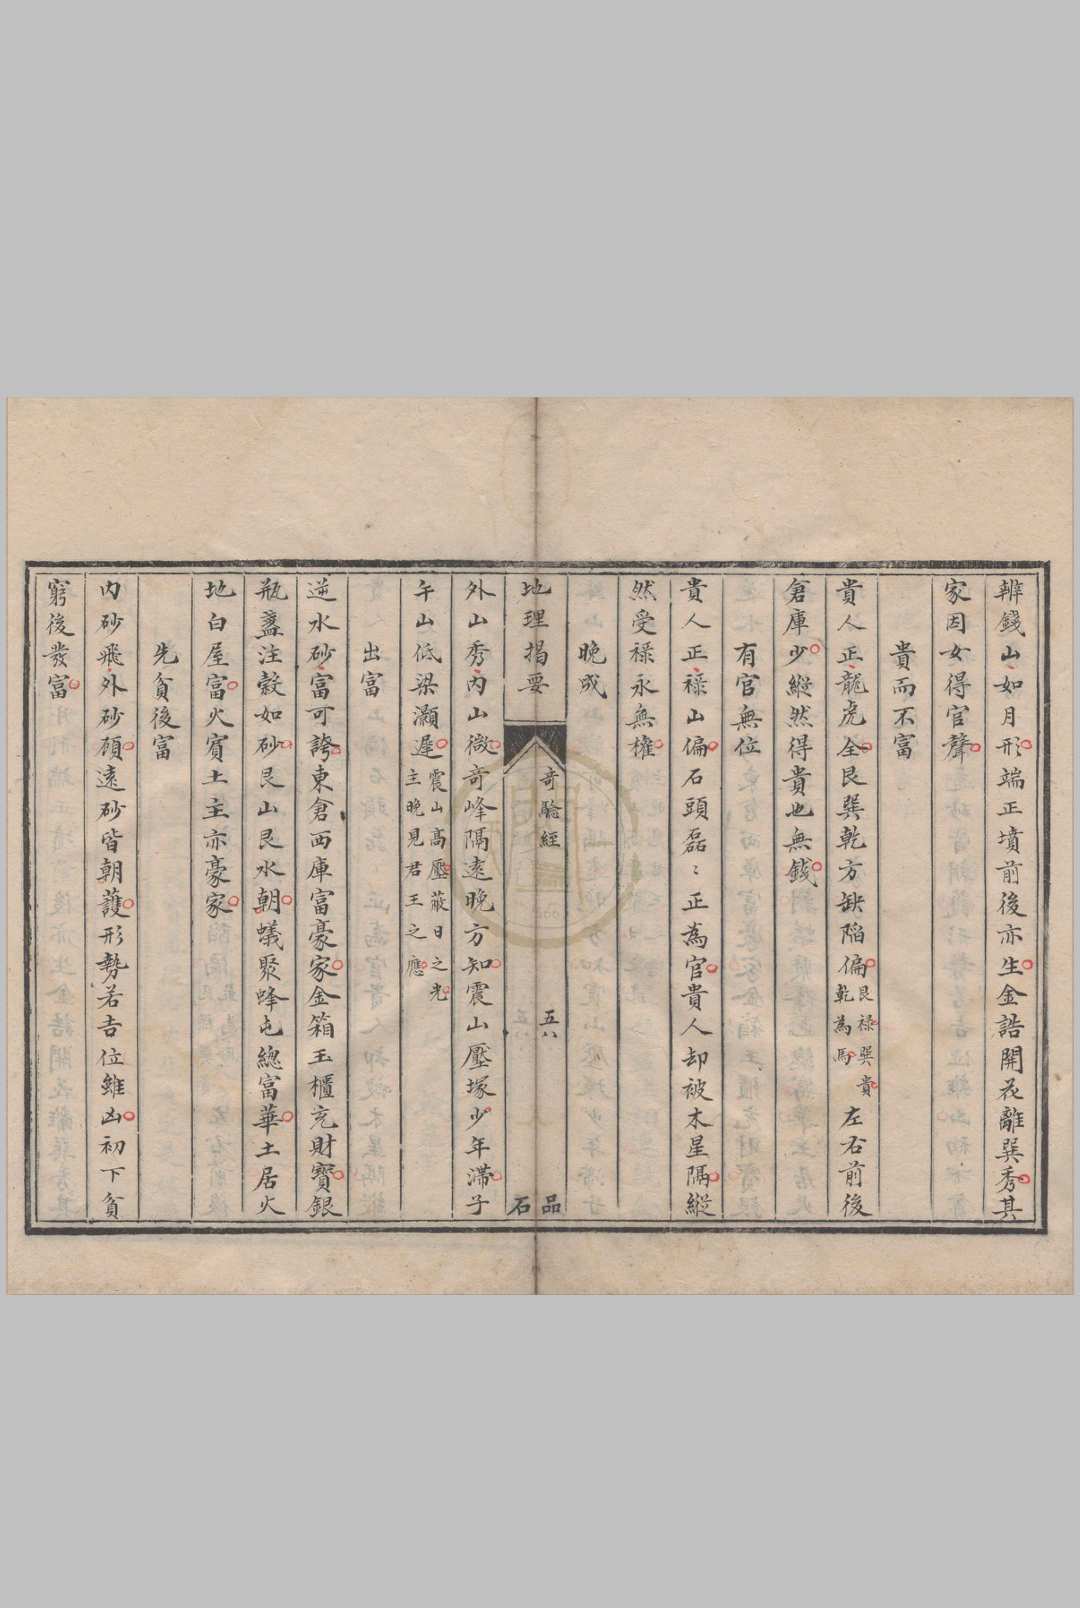 辨錢山如月形端正墳前後亦生金誥開花離巽秀其
家因女得官聲
貴而不富
貴人正龍虎全艮巽乾方缺陷偏艮祿巽貴乾為馬左右前後
倉庫少縱然得貴也無錢
有官無位
貴人正祿山偏石頭磊〻正為官貴人却被木星隔縱
然受祿永無權
晚成
地理揭要 奇驗經 五八 品石
外山秀內山微奇峰隔遠晚方知震山壓塚少年滯子
午山低梁灝遲震山高壓蔽日之光主晚見君王之應
出富
逆水砂富可誇東倉西庫富豪家金箱玉櫃充財寶銀
瓶盞注穀如砂艮山艮水朝蟻聚蜂屯總富華土居火
地白屋富火賓土主亦豪家
先貧後富
內砂飛外砂頋遠砂皆朝護形勢若吉位雖凶初下貧
窮後發富